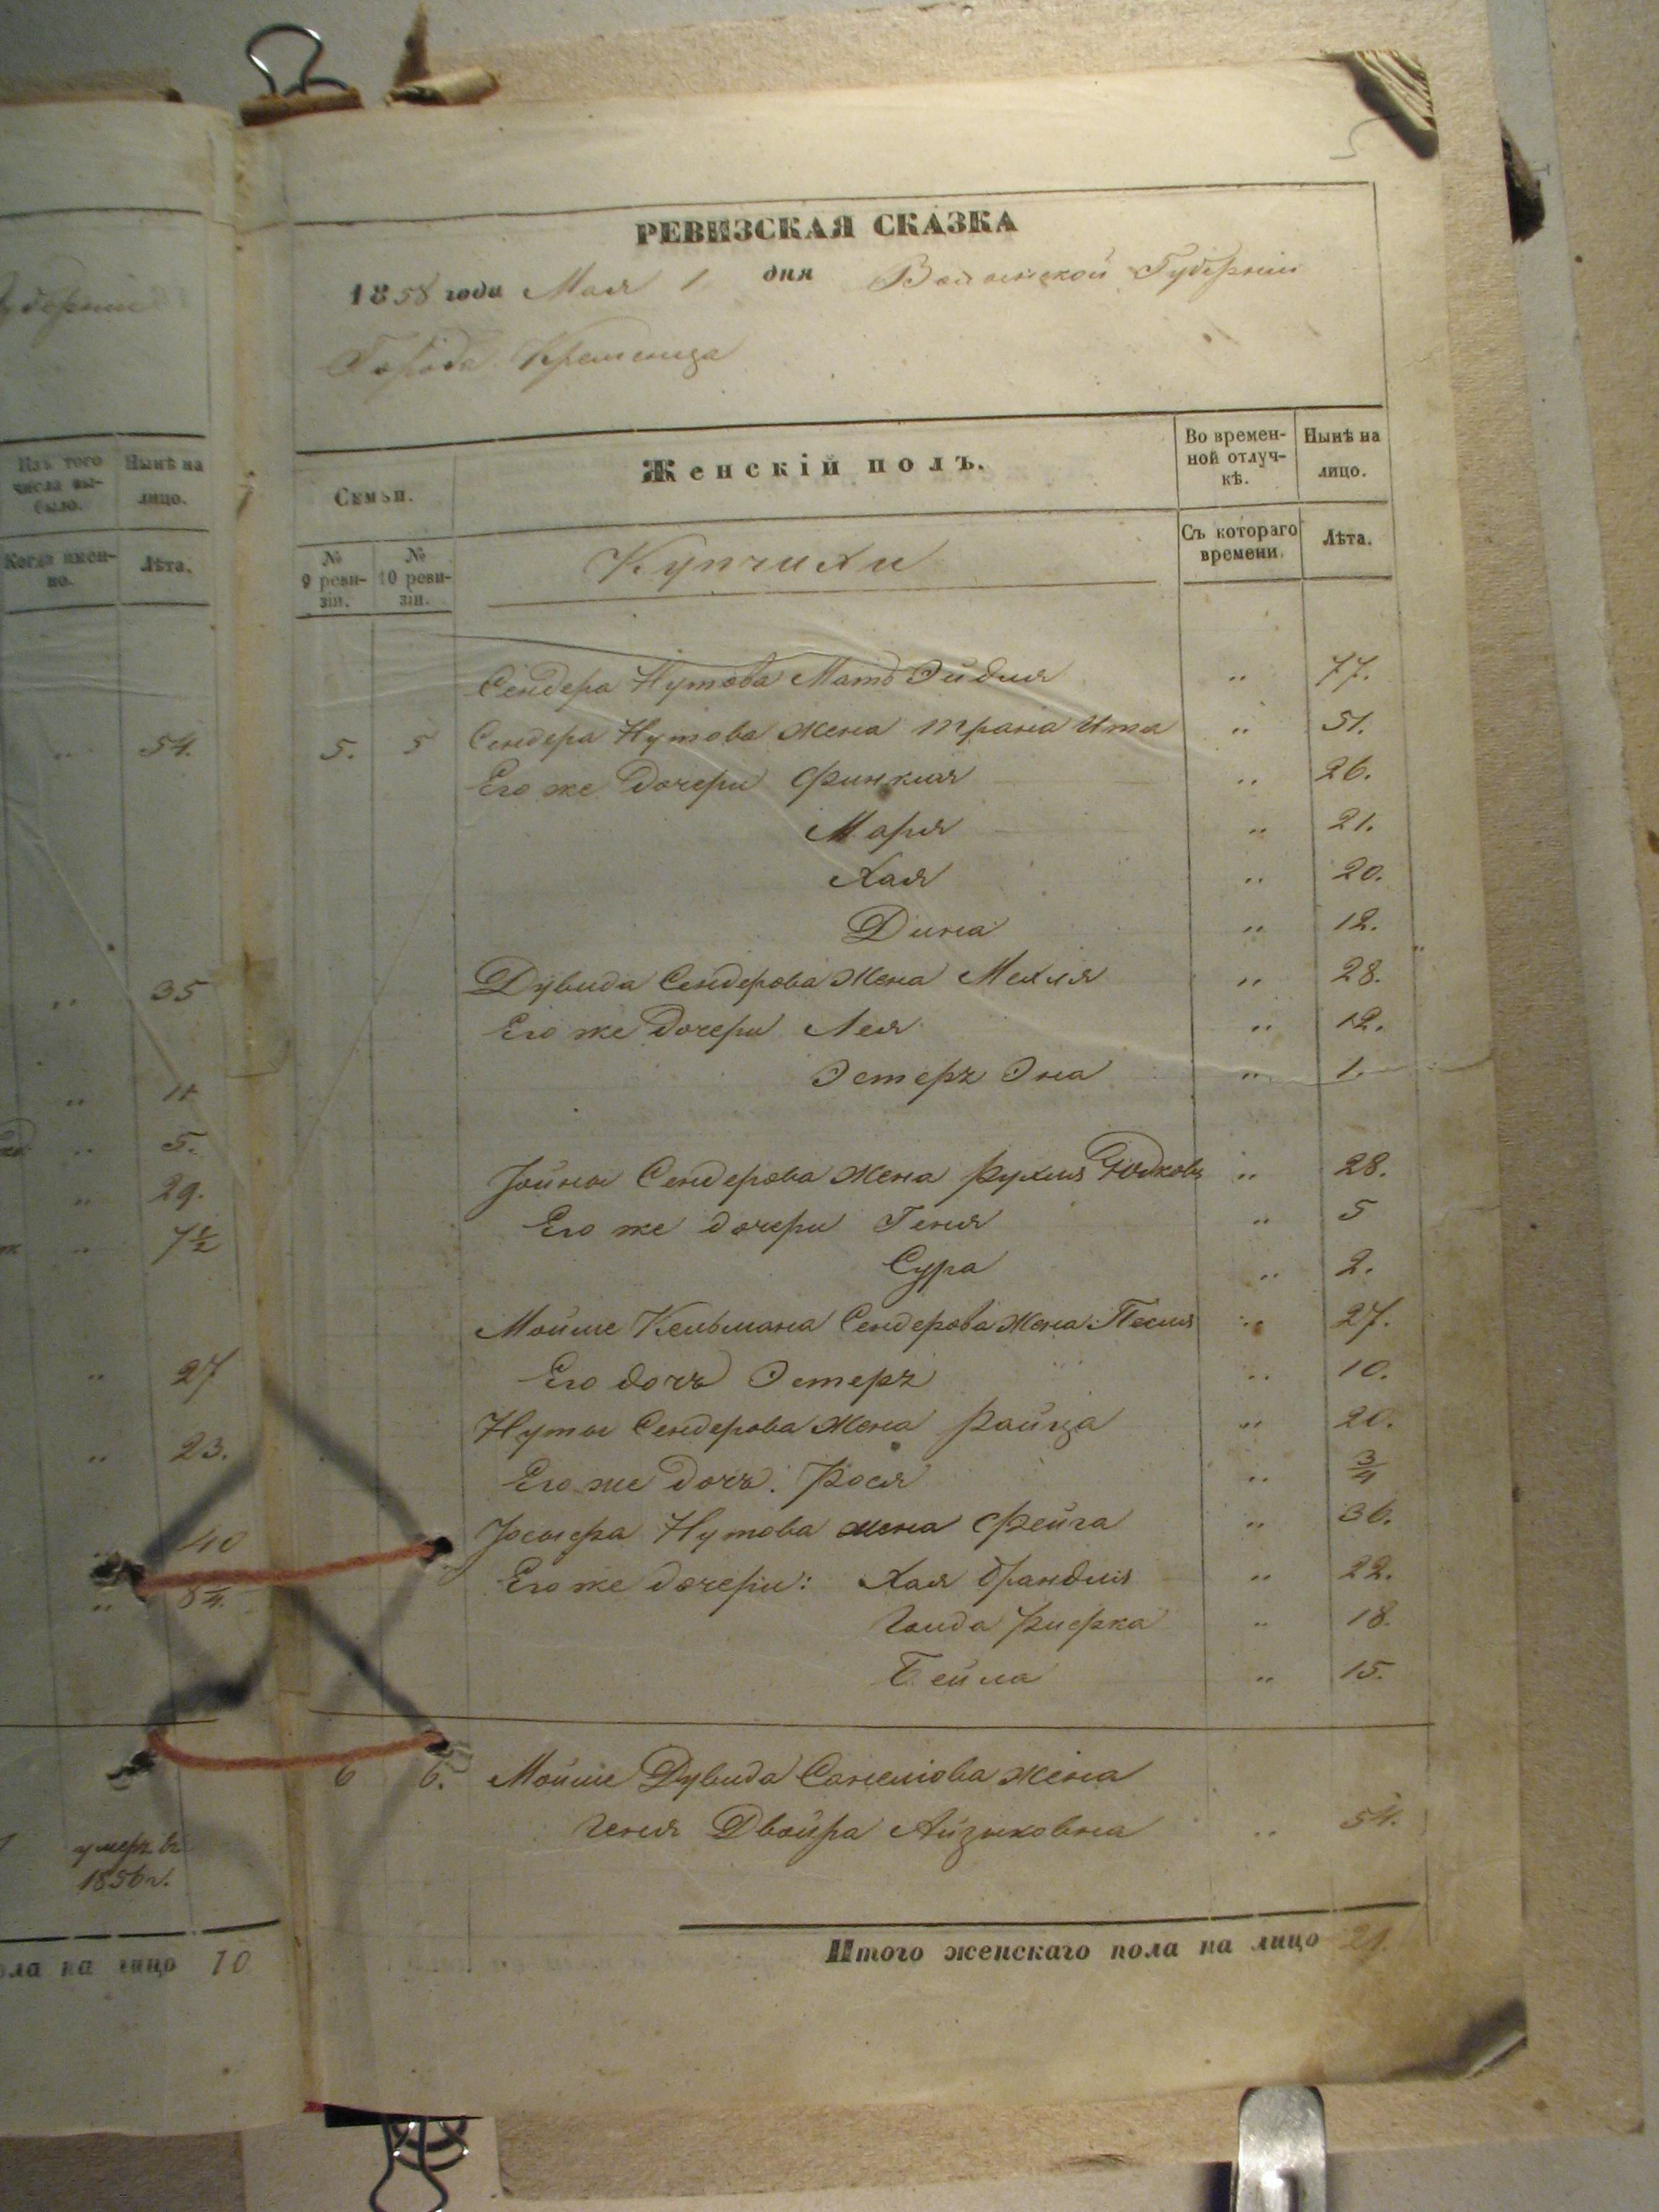 РЕВИЗСКАЯ СКАЗКА
1858 года Мая 1 дня Волынской Губерніи
Города Кременца
губерніи
Изъ того числа вы-было.
Нынѣ на лицо.
Когда имен-но.
Лѣта.
54.
35
11
5.
29.
7½
27
23.
40
8¼.
умеръ въ
1856 г.
пола на лицо 10
Семьи.
Женскій полъ.
Во времен-ной отлуч-кѣ.
Нынѣ на лицо.
№ 9 реви-зіи.
№ 10 реви-зіи.
Купчихи
Съ котораго времени.
Лѣта.
Сендера Нутова Мать Эйдля " 77.
5. 5 Сендера Нутова жена Трана Ита " 51.
Его же дочери Финкля " 26.
Маря " 21.
Хая " 20.
Дина " 12.
Дувида Сендерова жена Мехля " 28.
Его же дочери Лея " 12.
Эстеръ Эна " 1.
Іойны Сендерова жена Рухля Юдковъ " 28.
Его же дочери Геня " 5
Сура " 2.
Мойше Кельмана Сендерова жена Песля " 27.
Его дочь Эстеръ " 10.
Нуты Сендерова жена Райца " 20.
Его же дочь. Рося " ¾
Іосифа Нутова жена Фейга " 36.
Его же дочери: Хая Брандля " 22.
Ривка " 18.
Бейла " 15.
6 6. Мойше Дувида жена
Геня Двойра Айзиковна " 54.
Итого женскаго пола на лицо 21.